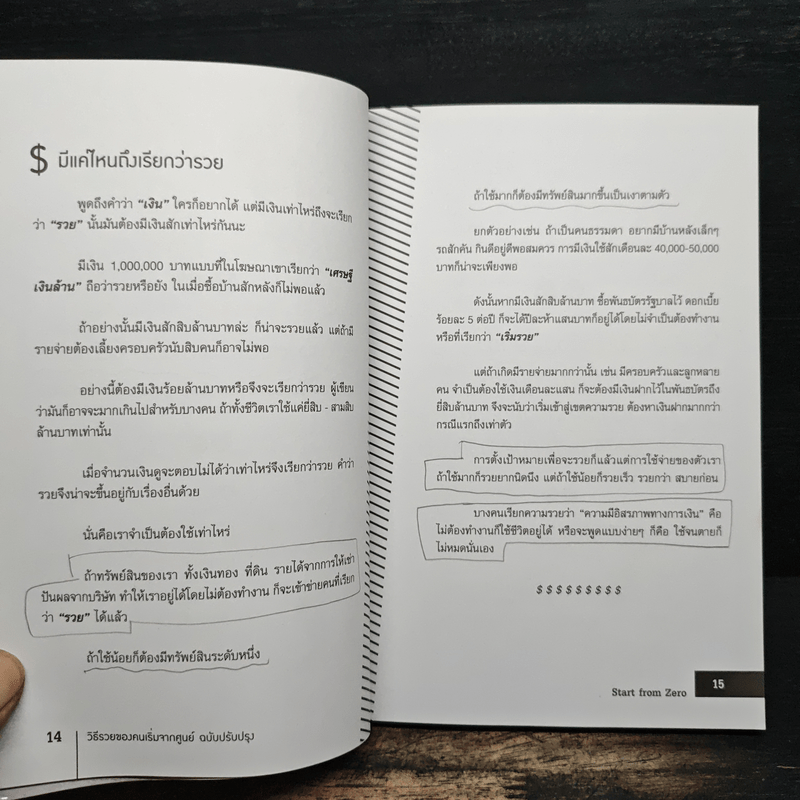 $ มีแค่ไหนถึงเรียกว่ารวย
พูดถึงคำว่า “เงิน” ใครก็อยากได้ แต่มีเงินเท่าไหร่ถึงจะเรียก
ว่า “รวย” นั้นมันต้องมีเงินสักเท่าไหร่กันนะ
มีเงิน 1,000,000 บาทแบบที่ในโฆษณาเขาเรียกว่า “เศรษฐี
เงินล้าน” ถือว่ารวยหรือยัง ในเมื่อซื้อบ้านสักหลังก็ไม่พอแล้ว
ถ้าอย่างนั้นมีเงินสักสิบล้านบาทล่ะ ก็น่าจะรวยแล้ว แต่ถ้ามี
รายจ่ายต้องเลี้ยงครอบครัวนับสิบคนก็อาจไม่พอ
อย่างนี้ต้องมีเงินร้อยล้านบาทหรือจึงจะเรียกว่ารวย ผู้เขียน
ว่ามันก็อาจจะมากเกินไปสำหรับบางคน ถ้าทั้งชีวิตเราใช้แค่ยี่สิบ - สามสิบ
ล้านบาทเท่านั้น
เมื่อจำนวนเงินดูจะตอบไม่ได้ว่าเท่าไหร่จึงเรียกว่ารวย คำว่า
รวยจึงน่าจะขึ้นอยู่กับเรื่องอื่นด้วย
นั่นคือเราจำเป็นต้องใช้เท่าไหร่
ถ้าทรัพย์สินของเรา ทั้งเงินทอง ที่ดิน รายได้จากการให้เช่า
ปันผลจากบริษัท ทำให้เราอยู่ได้โดยไม่ต้องทำงาน ก็จะเข้าข่ายคนที่เรียก
ว่า “รวย” ได้แล้ว
ถ้าใช้น้อยก็ต้องมีทรัพย์สินระดับหนึ่ง
14 วิธีรวยของคนเริ่มจากศูนย์ ฉบับปรับปรุง
ถ้าใช้มากก็ต้องมีทรัพย์สินมากขึ้นเป็นเงาตามตัว
ยกตัวอย่างเช่น ถ้าเป็นคนธรรมดา อยากมีบ้านหลังเล็กๆ
รถสักคัน กินดีอยู่ดีพอสมควร การมีเงินใช้สักเดือนละ 40,000-50,000
บาทก็น่าจะเพียงพอ
ดังนั้นหากมีเงินสักสิบล้านบาท ซื้อพันธบัตรรัฐบาลไว้ ดอกเบี้ย
ร้อยละ 5 ต่อปี ก็จะได้ปีละห้าแสนบาทก็อยู่ได้โดยไม่จำเป็นต้องทำงาน
หรือที่เรียกว่า “เริ่มรวย”
แต่ถ้าเกิดมีรายจ่ายมากกว่านั้น เช่น มีครอบครัวและลูกหลาย
คน จำเป็นต้องใช้เงินเดือนละแสน ก็จะต้องมีเงินฝากไว้ในพันธบัตรถึง
ยี่สิบล้านบาท จึงจะนับว่าเริ่มเข้าสู่เขตความรวย ต้องหาเงินฝากมากกว่า
กรณีแรกถึงเท่าตัว
การตั้งเป้าหมายเพื่อจะรวยก็แล้วแต่การใช้จ่ายของตัวเรา
ถ้าใช้มากก็รวยยากนิดนึง แต่ถ้าใช้น้อยก็รวยเร็ว รวยกว่า สบายก่อน
บางคนเรียกความรวยว่า “ความมีอิสรภาพทางการเงิน” คือ
ไม่ต้องทำงานก็ใช้ชีวิตอยู่ได้ หรือจะพูดแบบง่ายๆ ก็คือ ใช้จนตายก็
ไม่หมดนั่นเอง
$ $ $ $ $ $ $ $ $
Start from Zero 15